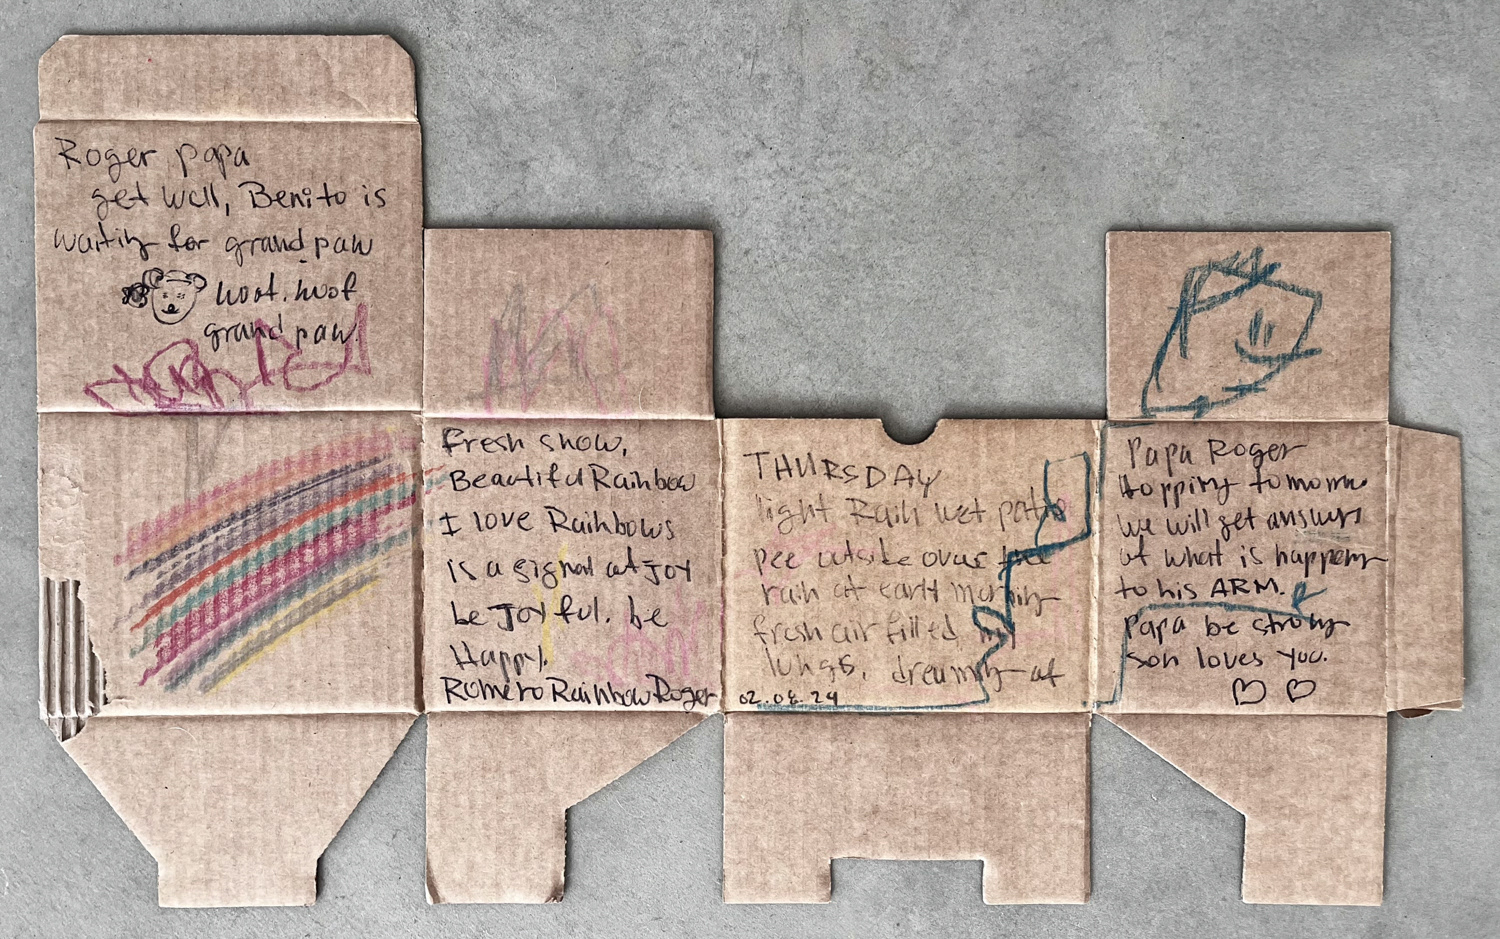 Roger papa
get well, Benito is
waitin for grand paw
woof. woof
grand paw.
fresh snow,
Beautiful Rainbow
I love Rainbows
is a signal of JOY
be JOYful. be
Happy.
Romero Rainbow Roger
THURSDAY
light Rain wet patio
pee outside over the
rain at early morning
fresh air filled my
lungs. dreaming of
02.08.24
Papa Roger
Hopping tomorrow
we will get answers
of what is happening
to his ARM.
Papa be strong
son loves you.